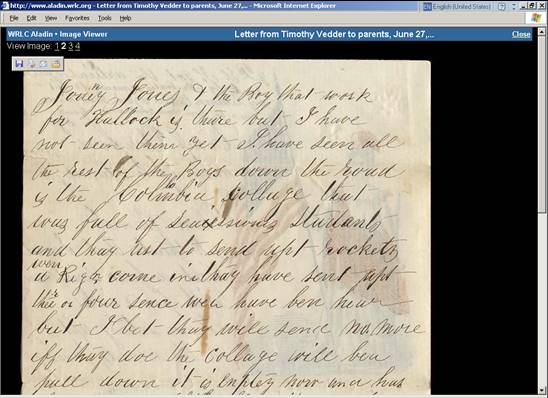 http://www.aladin.wrlc.org - Letter from Timothy Vedder to parents, June 27,... - Microsoft Internet Explorer
EN English (United States)
File Edit View Favorites Tools Help
WRLC Aladin • Image Viewer Letter from Timothy Vedder to parents, June 27,... Close
View Image: 1 2 3 4
Jones & the Boy that work
for Hallock is thare but I have
not seen them yet I have seen all
the rest of the Boys down the road
is the Colmbia Collage that
was full of students
and thay ust to send upt rockets
a come in thay have sent upt
or four sence wea have ben hear
but I bet thay will send no more
iff thay doe the Collage will bea
pull down it is now and has